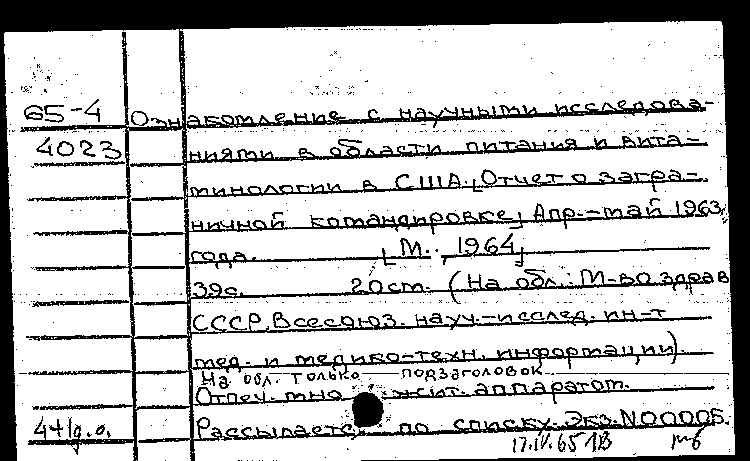 65-4 Ознакомление с научными исследова-
4023 ниями в области питания и вита-
минологии в США. [Отчет о загра-
ничной командировке] Апр.-май 1963
года. [М., 1964]
39с. 20 см. (На обл.: М-во здрав
СССР. Всесоюз. науч.-исслед. ин-т
мед. и медико-техн. информации).
На обл. только подзаголовок.
Отпеч. множит. аппаратом.
44/д.о. Рассылается по списку. Экз. N00005.
17.IV.65